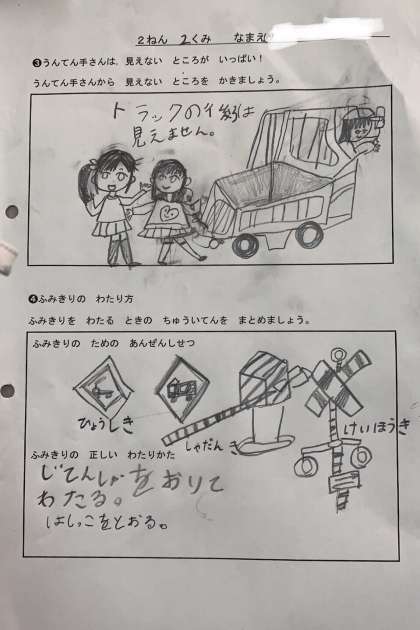 2ねん 2くみ なまえ
❸うんてん手さんは、見えない ところが いっぱい！
うんてん手さんから 見えない ところを かきましょう。
トラックの後は
見えません。
❹ふみきりの わたり方
ふみきりを わたる ときの ちゅういてんを まとめましょう。
ふみきりの ための あんぜんしせつ
ひょうしき
しゃだんき
けいほうき
ふみきりの 正しい わたりかた
じてんしゃをおりて
わたる。
はしっこをとおる。